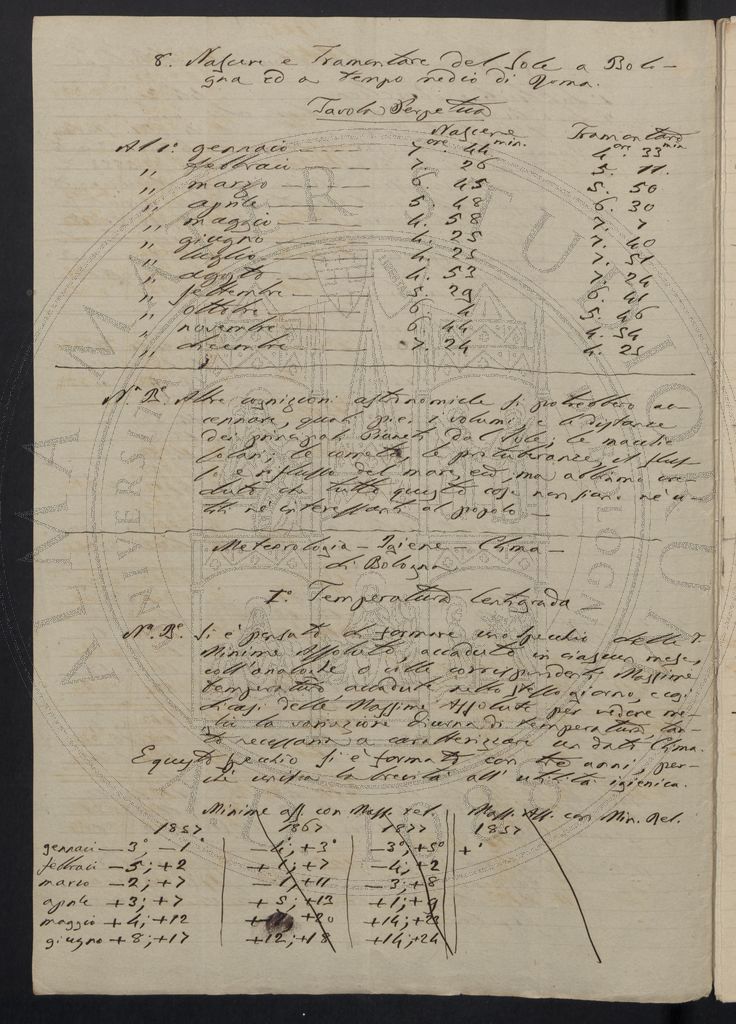 8. Nascere e Tramontare del Sole a Bolo-
gna ed a tempo medio di Roma.
Tavola Perpetua
Nascere Tramontare
ore min. ore min.
Al 1º gennaio 7. 44 4. 33
,, febbraio 7. 26 5. 11.
,, marzo 6. 45 5. 50
,, aprile 5. 48 6. 30
,, maggio 4. 58 7. 7
,, giugno 4. 25 7. 40
,, luglio 4. 25 7. 51
,, agosto 4. 53 7. 24
,, settembre 5. 29 6. 41
,, ottobre 6. 4 5. 46
,, novembre 6. 44 4. 54
,, dicembre 7. 24 4. 25
Nª Bº Altre cognizioni astronomiche si potrebbero ac-
cennare, quali i volumi e le distanze
dei principali Pianeti dal Sole, le macchie
solari, le comete, le protuberanze, il flus-
so e riflusso del mare, ecc, ma abbiamo cre-
duto che tutte queste cose non siano nè u-
tili nè interessanti al popolo
Meteorologia - Igiene - Clima -
di Bologna
Iº Temperatura Centigrada
Nª. Bº. Si è pensato di formare uno specchio delle T.
Minime Assolute, accadute in ciascun mese,
coll'analoghe o colle corrispondenti Massime
temperature accadute nello stesso giorno, e così
dicasi delle Massime Assolute per vedere me-
glio la variazione diurna di temperatura, tan-
to necessaria a caratterizzare un dato Clima.
E questo specchio si è formato con anni, per-
chè unisca la brevità all'utilità igienica.
Minime ass. con Mass. rel. Mass. Ass. con Min. Rel.
1857 1867 1877 1857
gennaio - 3°; - 1° - 4; + 3° - 3°; + 5° +°
febbraio - 5; + 2 + 1; + 7 - 4; + 2
marzo - 2; + 7 - 1; + 11 - 3; + 8
aprile + 3; + 7 + 5; + 13 + 1; + 9
maggio + 4; + 12 + 20 + 14;
giugno + 8; + 17 + 12; + 18 + 14; + 24
ALMA MATER STUDIORUM